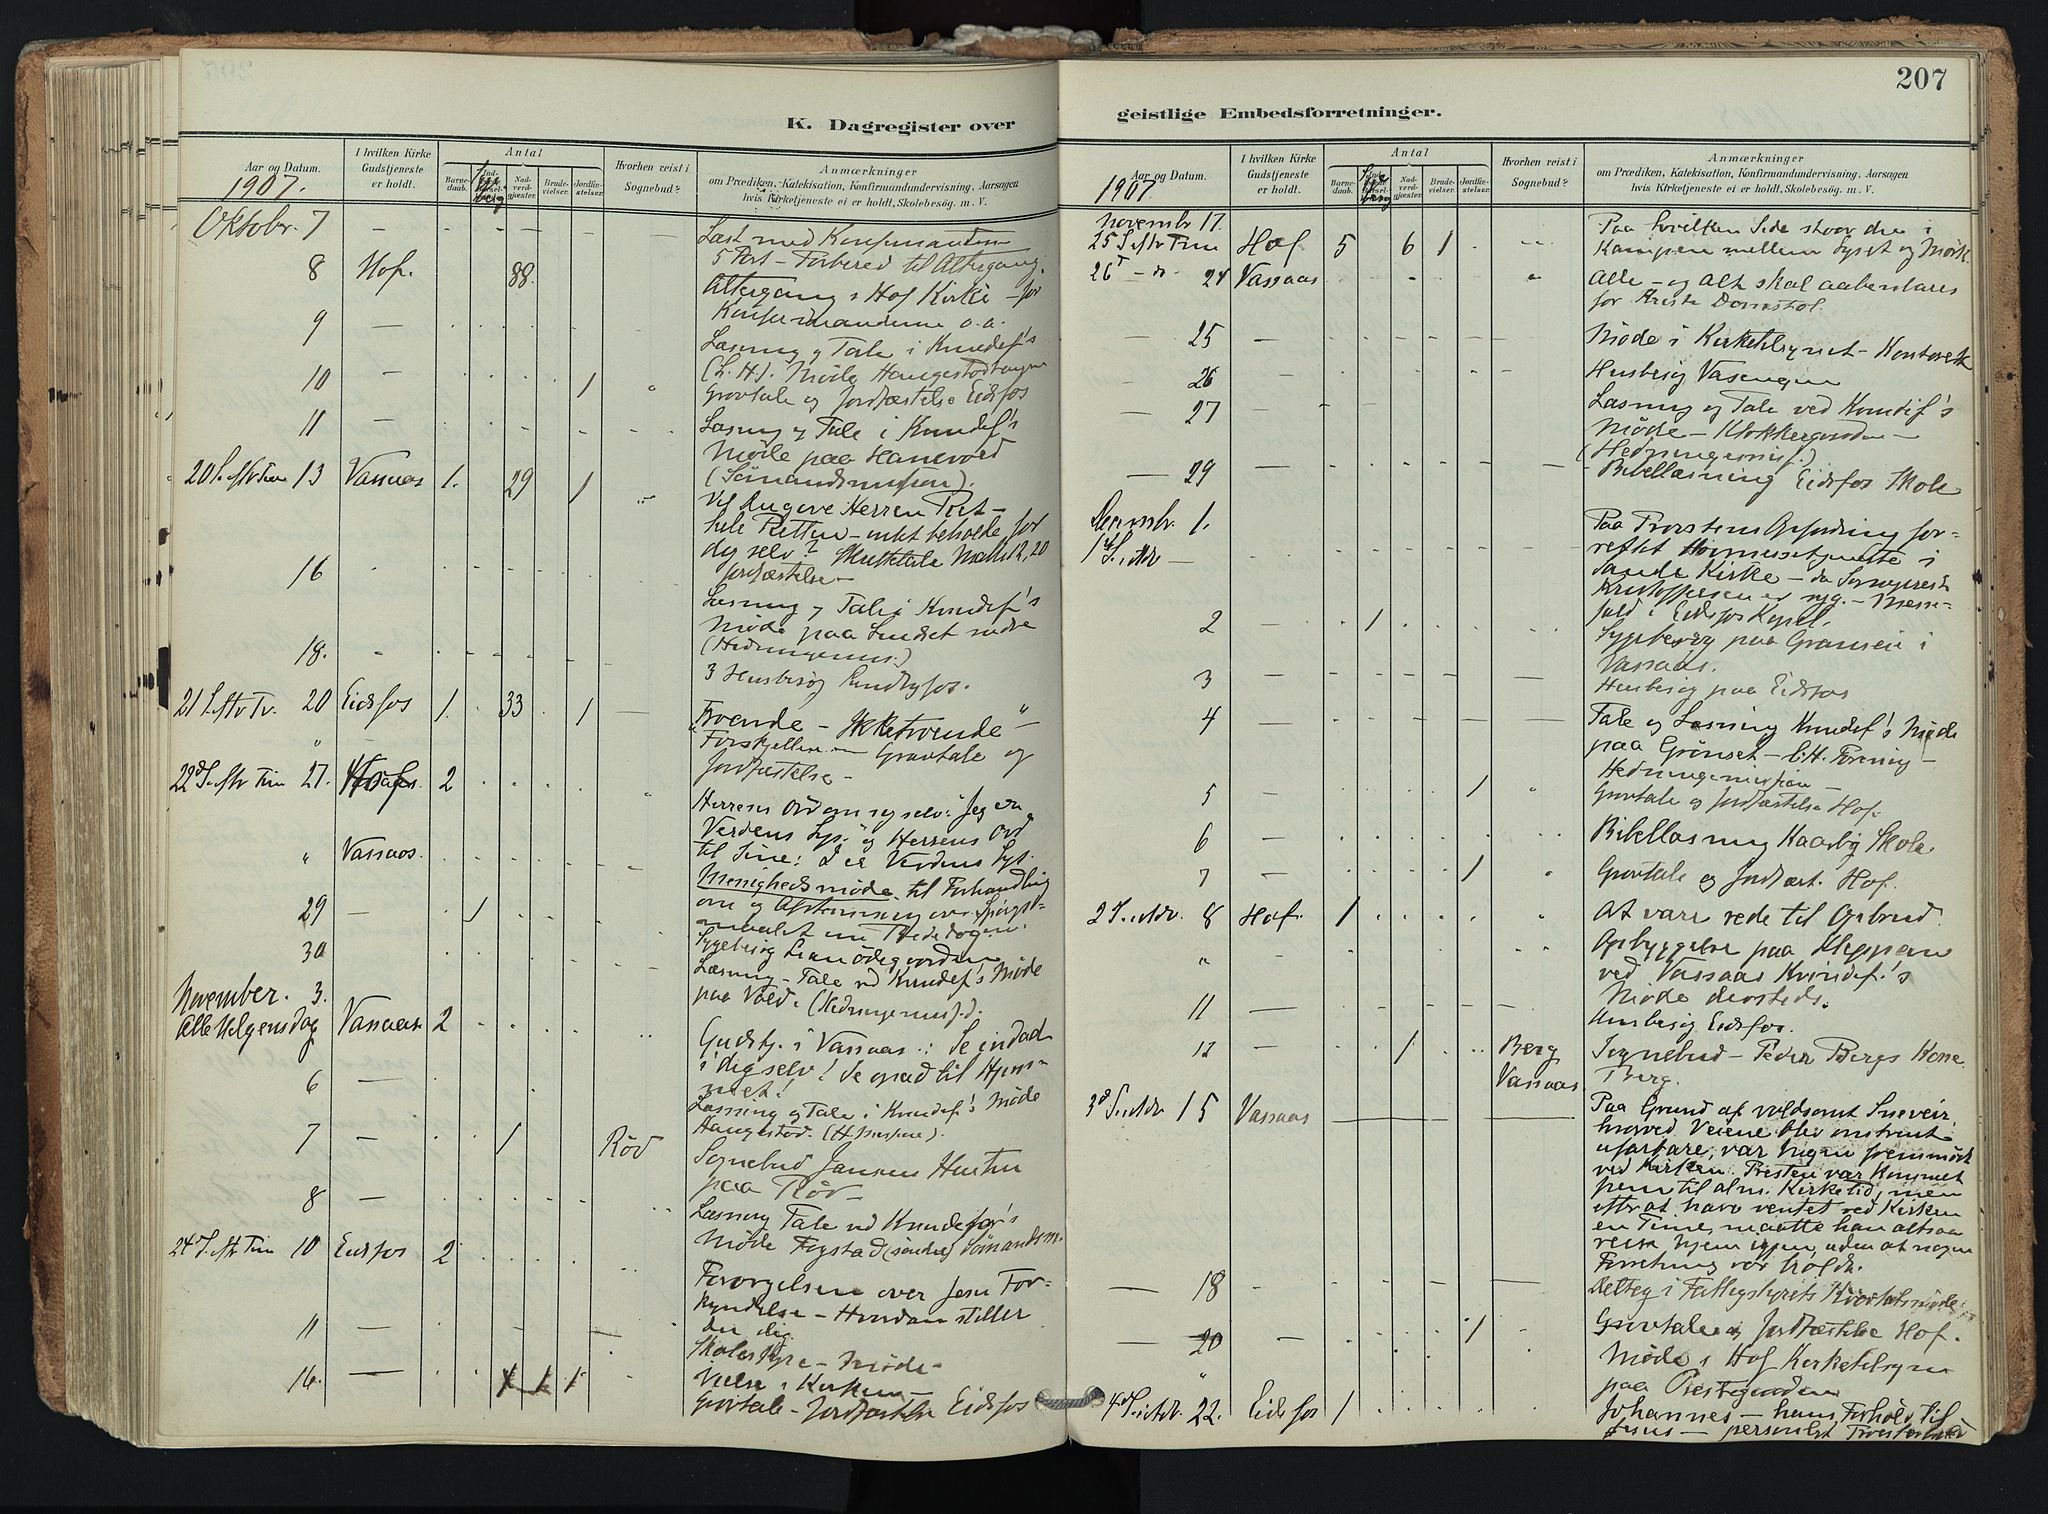 207
K. Dagregister over
geistlige Embedsforretninger.
Aar og Datum.
I hvilken Kirke Gudstjeneste er holdt.
Antal
Barnedaab.
Nadverdgjæster.
Brudevielser.
Jordfæstelser.
Hvorhen reist i Sognebud?
Anmærkninger
om Prædiken, Katekisation, Konfirmandundervisning, Aarsagen
hvis Kirketjeneste ei er holdt, Skolebesøg. m. V.
1907.
Oktobr. 7 — Læst med Konfirmanderne
5 — Forbered til Altergang.
8 Hof. 88. Altergang i Hof Kirke — for
Konfirmanderne o.a.
9 — Læsning og Tale i Kvindef's
(L. H.). Møde Haugestad
10 — 1 Gravtale og Jordfæstelse Eidsfos
11 — Læsning og Tale i Kvindef's
Møde paa Hanevold
(Sømandsmission).
20 S. eftr Trin 13 Vassaas 1. 29 1 Vil du give Herren
hele — enkt beholde for
dig selv? Skriftetale Matth 12,20
Jordfæstelse —
16 Læsning og Tale i Kvindef's
Møde paa søndre
(Hedningemis.)
18. 3 Husbesøg Sundbyfos.
21 S. eftr Tr. 20 Eidsfos 1. 33 1 — "Troende — Ikketroende" —
Forskjellen — Gravtale og
Jordfæstelse —
22d S. eftr Trin 27. Hof 2 Herrens Ord om sig selv: "Jeg er
Verdens Lys" og Herrens Ord
til Sine: I er Verdens Lys.
" Vassaas. Menighedsmøde til Forhandling
om og Afstemning over Spørgs-
maalet om
29 — 1 Sygebesøg
30 Læsning — Tale ved Kvindef's Møde
paa Vold. (Hedningemis.).
November. 3.
Alle Helgensdag Vassaas 2 Gudstj. i Vassaas: Se indad
i dig selv! Se opad til Hjem-
met!
6 — Læsning og Tale i Kvindef's Møde
Haugestad. (H. mission).
7 — 1 Rød Sognebud Jansens Hustru
paa Rød —
8 — Læsning Tale ved Kvindefor's
Møde Fogstad (søndre) Sømandsm.
24d S. eftr Trin 10 Eidsfos 2 Forargelsen over Jesu For-
kyndelse — Hvordan stiller
du dig
11 Skolestyre — Møde —
16. — 1 1 1 Vielse i Kirken —
Gravtale — Jordfæstelse Eidsfos
Aar og Datum.
I hvilken Kirke Gudstjeneste er holdt.
Antal
Barnedaab.
Nadverdgjæster.
Brudevielser.
Jordfæstelser.
Hvorhen reist i Sognebud?
Anmærkninger
om Prædiken, Katekisation, Konfirmandundervisning, Aarsagen
hvis Kirketjeneste ei er holdt, Skolebesøg. m. V.
1907.
Novembr 17.
25 S. eftr Trin Hof 5 6 1 Paa hvilken Side staar du i
Kampen mellem Lyset og Mørk.
26d — do — 24 Vassaas Alle — og Alt skal aabenbares
for Kristi Domstol.
— 25 — Møde i Kirketilsynet —
— 26 — Husbesøg Vasengen
— 27 — Læsning og Tale ved Kvindef's
Møde — Klokkergaarden —
(Hedningemis.)
— 29 — Bibellæsning Eidsfos Skole
Decembr. 1.
1ste S. i Adv — Paa Provstens Opfordring for-
rettet Høimessetjeneste i
Sande Kirke — da Sogneprest
Kristoffersen er syg. — Messe-
fald i Eidsfos Kapel.
2 — 1 Sygebesøg paa i
Vassaas.
3 — Husbesøg paa Eidsfos
4 — Tale og Læsning Kvindef's Møde
paa Grønset — Forening —
Hedningemission —
5 — 1 Gravtale og Jordfæstelse Hof.
6 — Bibellæsning Haarby Skole
7 — 1 Gravtale og Jordfæst. Hof.
2 S. i Adv. 8 Hof. 1 At være rede til Opbrud.
" Opbyggelse paa Kleppen
ved Vassaas Kvindef.'s
Møde dersteds.
11 — Husbesøg Eidsfos.
12 1 Berg Vassaas Sognebud — Peder Bergs Kone
Berg.
3d S. i Adv. 15 Vassaas Paa Grund af voldsomt Sneveir,
hvorved Veiene blev omtrent
ufarbare, var ingen fremmødt
ved Kirken. Presten var kommet
frem til alm. Kirketid, men
efter at have ventet ved Kirken
en Time, maatte han altsaa
reise hjem igjen, uden at nogen
Forretning var holdt.
— 18 Deltog i Fattigstyrets Møde
— 20 — 1 Gravtale og Jordfæstelse Hof.
" Møde i Hof Kirketilsyn
paa Prestegaarden
4d S. i Adv. 22. Eidsfos 1 Johannes — hans Forhold til
Jesus — personligt